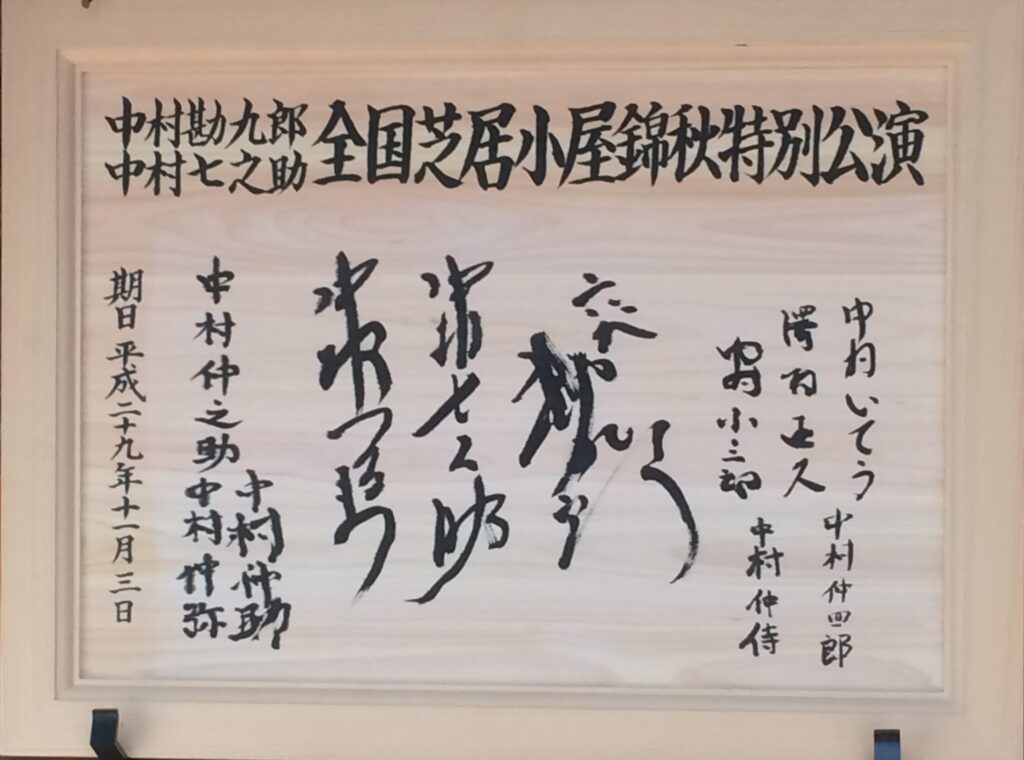 中村勘九郎
中村七之助
全国芝居小屋錦秋特別公演
中村いてう
澤村国久
中村小三郎
中村仲四郎
中村仲侍
中村七之助
中村仲之助
中村仲助
中村仲弥
期日 平成二十九年十一月三日